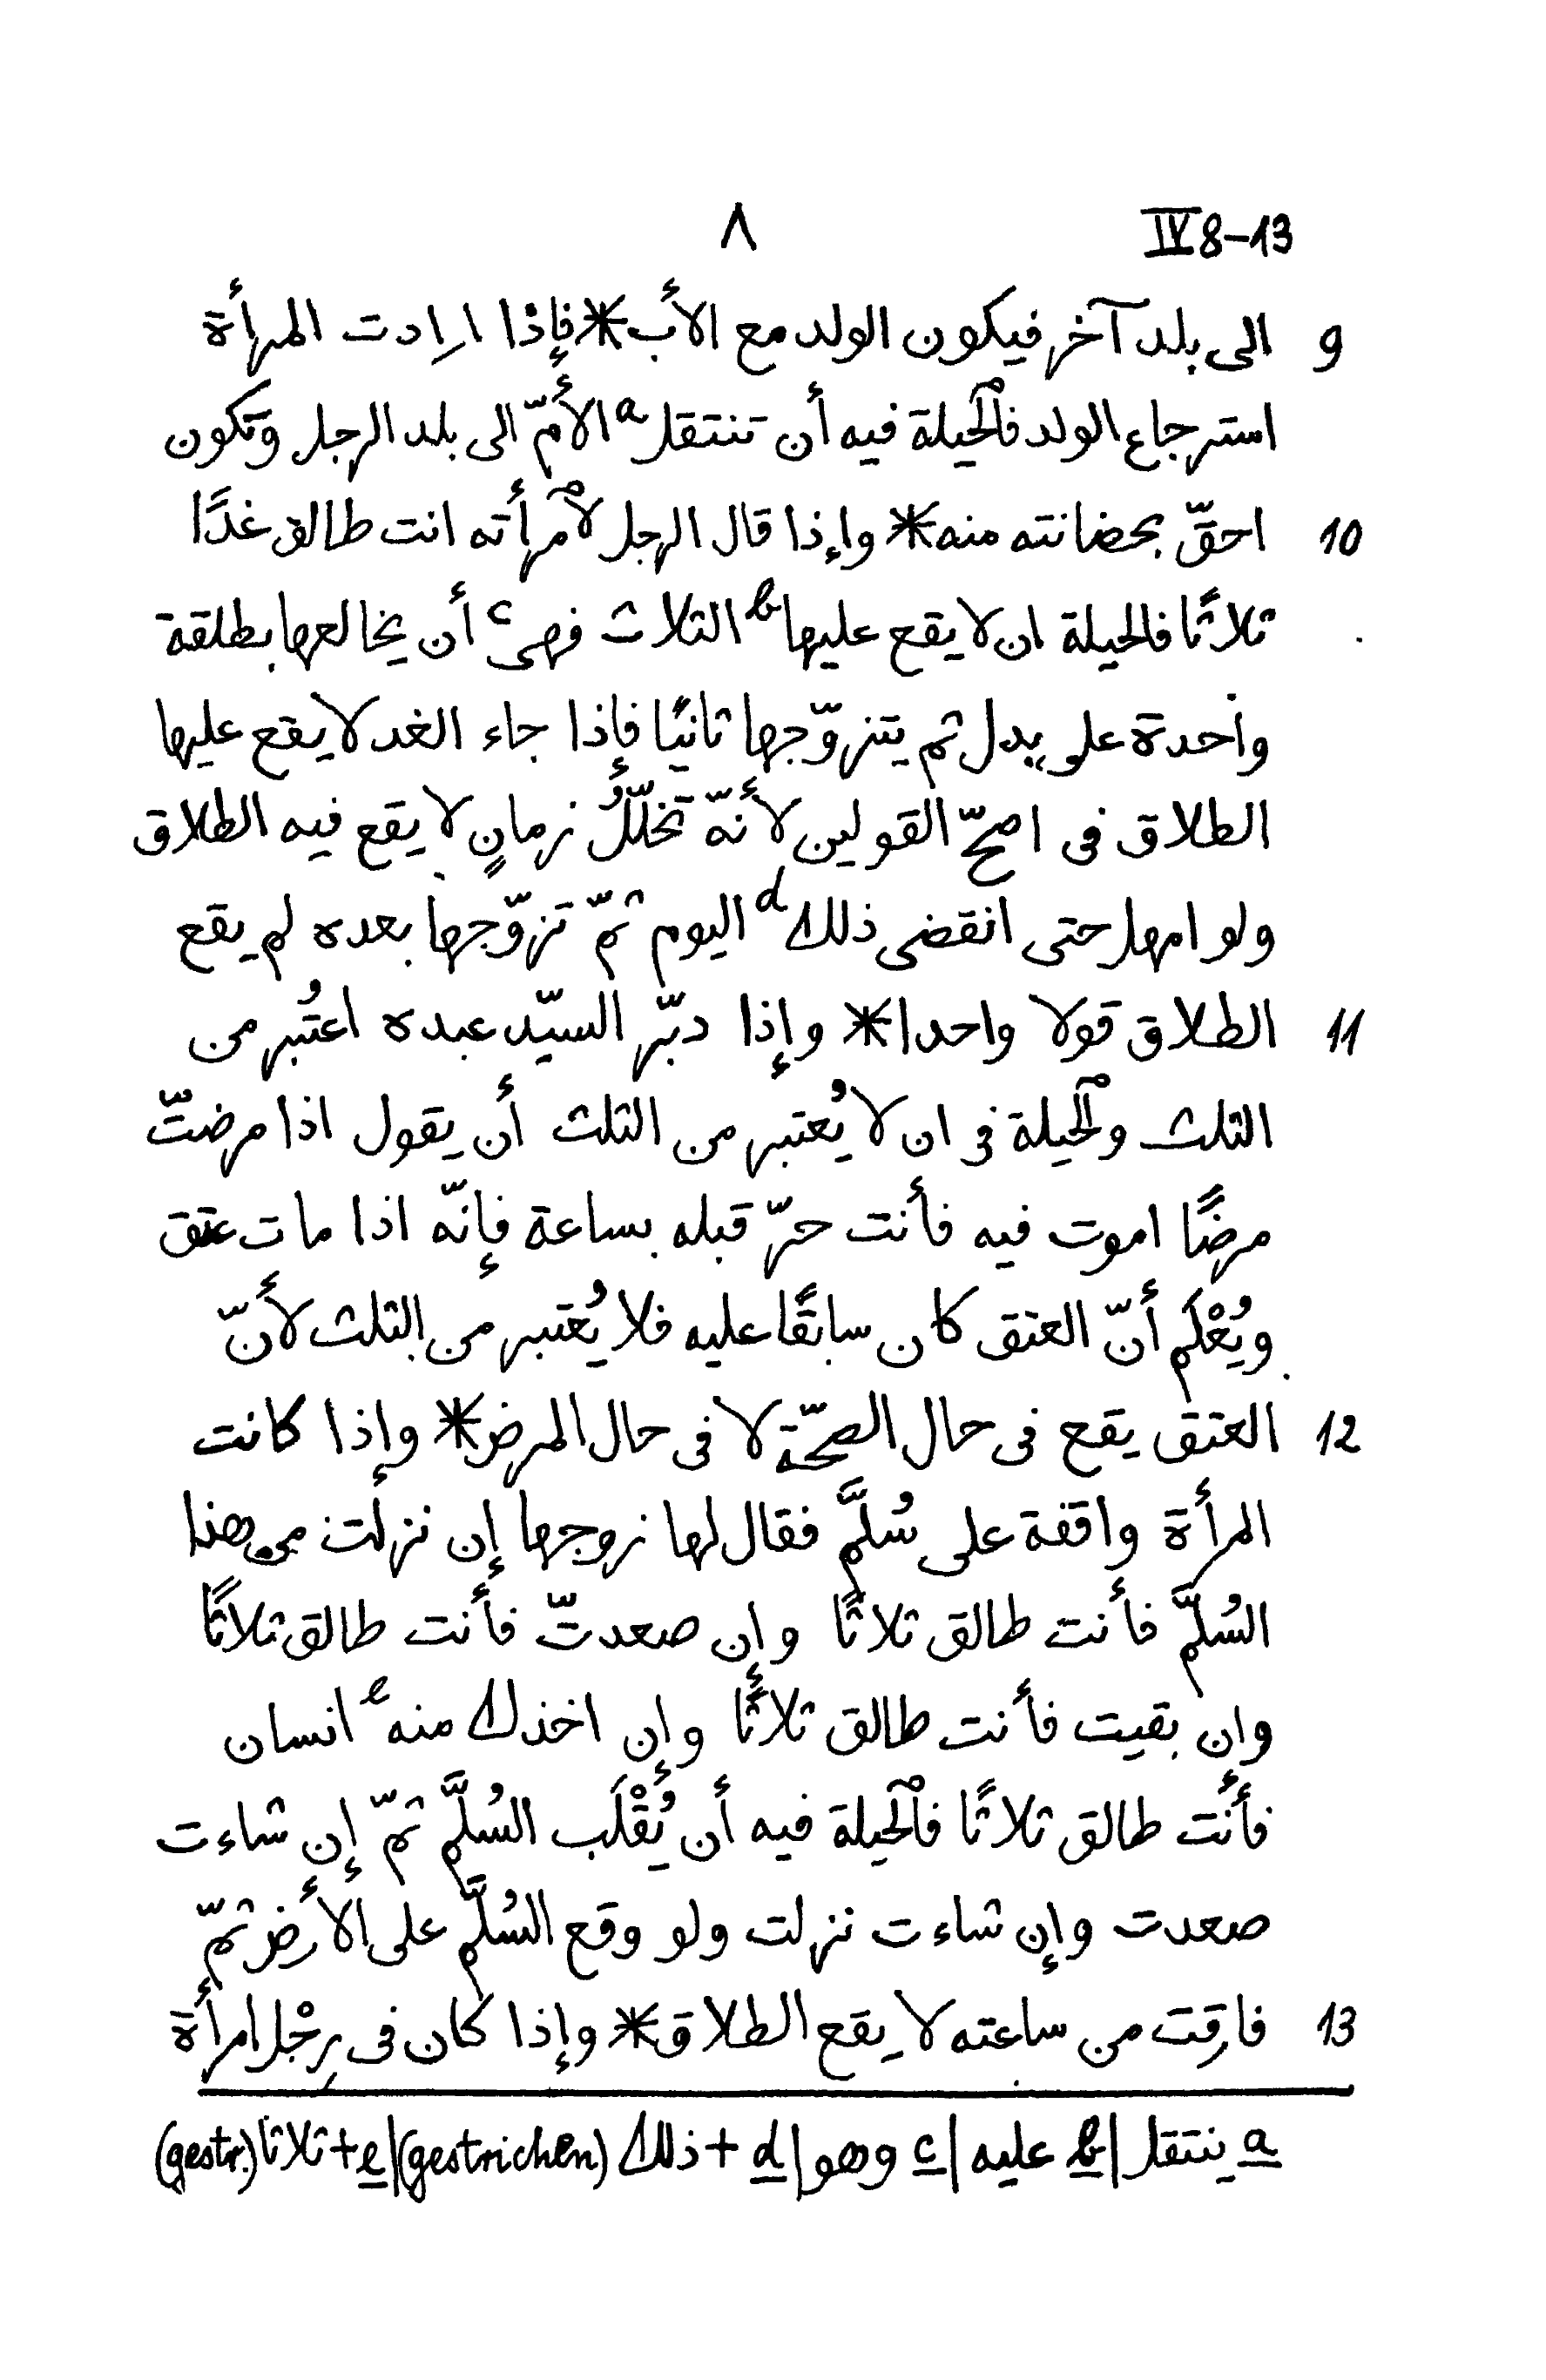 IV 8–13 ٨
9 الى بلد آخر فيكون الولد مع الأب * فإذا ارادت المرأة
استرجاع الولد فالحيلة فيه أن تنتقل a الأمّ الى بلد الرجل وتكون
10 احقّ بحضانته منه * وإذا قال الرجل لامرأته انت طالق غدًا
ثلاثًا فالحيلة ان لا يقع عليها b الثلاث فهى c أن يخالعها بطلقة
واحدة على بدل ثم يتزوّجها ثانيًا فإذا جاء الغد لا يقع عليها
الطلاق فى اصحّ القولين لأنّه تخلّلُ زمانٍ لا يقع فيه الطلاق
ولو امهل حتى انقضى ذلك d اليوم ثمّ تزوّجها بعده لم يقع
11 الطلاق قولا واحدا * وإذا دبّر السيّد عبده اعتُبر من
الثلث والحيلة فى ان لا يُعتبر من الثلث أن يقول اذا مرضتّ
مرضًا اموت فيه فأنت حرّ قبله بساعة فإنّه اذا مات عتق
ويُعْلَم أنّ العتق كان سابقًا عليه فلا يُعتبر من الثلث لأنّ
12 العتق يقع فى حال الصحّة لا فى حال المرض * وإذا كانت
المرأة واقفة على سُلَّم فقال لها زوجها إن نزلت من هذا
السُلَّم فأنت طالق ثلاثًا وإن صعدتّ فأنت طالق ثلاثًا
وإن بقيت فأنت طالق ثلاثًا وإن اخذك منه e انسان
فأنت طالق ثلاثًا فالحيلة فيه أن يُقْلَب السُلَّم ثمّ إن شاءت
صعدت وإن شاءت نزلت ولو وقع السُلَّم على الأرض ثمّ
13 فارقت من ساعته لا يقع الطلاق * وإذا كان فى رِجْل امرأة
a ينتقل | b عليه | c وهو | d + ذلك (gestrichen) | e + ثلاثا (gestr.)